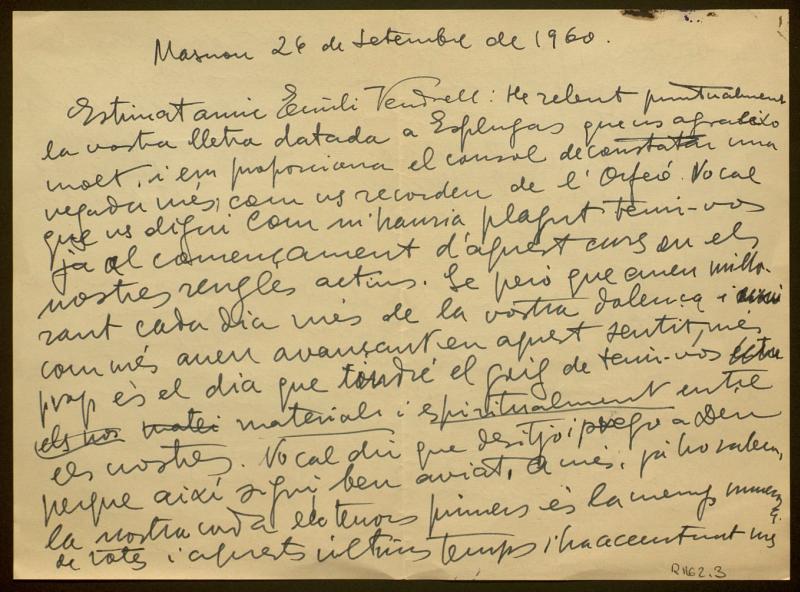 Masnou 26 de Setembre de 1960.
Estimat amic Emili Vendrell: He rebut puntualment
la vostra lletra datada a Esplugas que us agraeixo
molt, i em proporciona el consol de constatar una
vegada més, com us recorden de l'Orfeó. No cal
que us digui com m'hauria plagut tenir-vos
ja al començament d'aquest curs en els
nostres rengles actius. Se però que aneu millo-
rant cada dia més de la vostra dolença i
com més aneu avançant en aquest sentit, més
prop és el dia que tindré el goig de tenir-vos entre
els nos matei materials i espiritualment entre
els nostres. No cal dir que desitjo i prego a Deu
perque així sigui ben aviat. A més, ja ho sabeu,
la nostra corda els tenors primers és la menys
de vots i aquests ultims temps s'ha accentuat
R1162.3